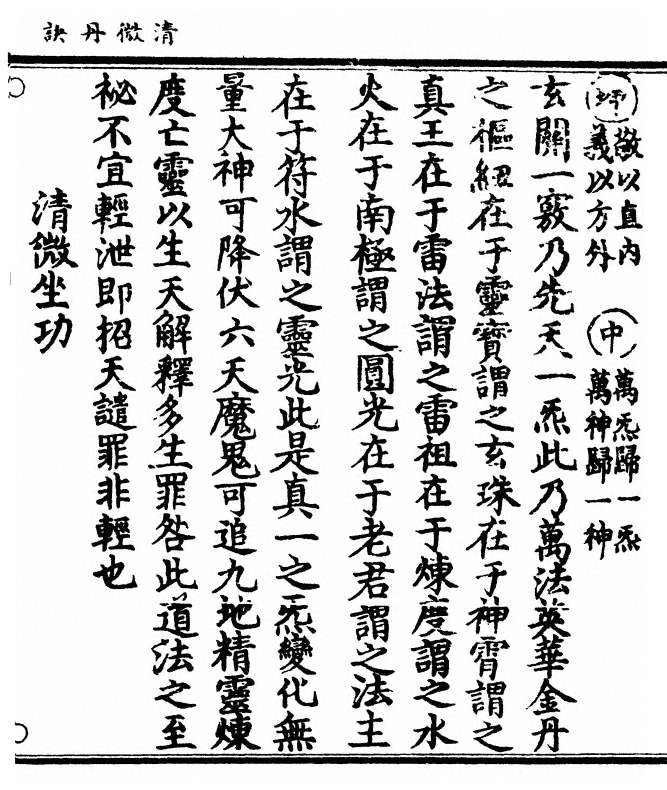 清微丹訣
敬以直内
義以方外
中
萬炁歸一炁
萬神歸一神
玄關一竅乃先天一炁此乃萬法英華金丹
之樞紐在于靈寶謂之玄珠在于神霄謂之
真王在于雷法謂之雷祖在于煉度謂之水
火在于南極謂之圓光在于老君謂之法主
在于符水謂之靈光此是真一之炁變化無
量大神可降伏六天魔鬼可追九地精靈煉
度亡靈以生天解釋多生罪咎此道法之至
祕不宜輕泄即招天譴罪非輕也
清微坐功